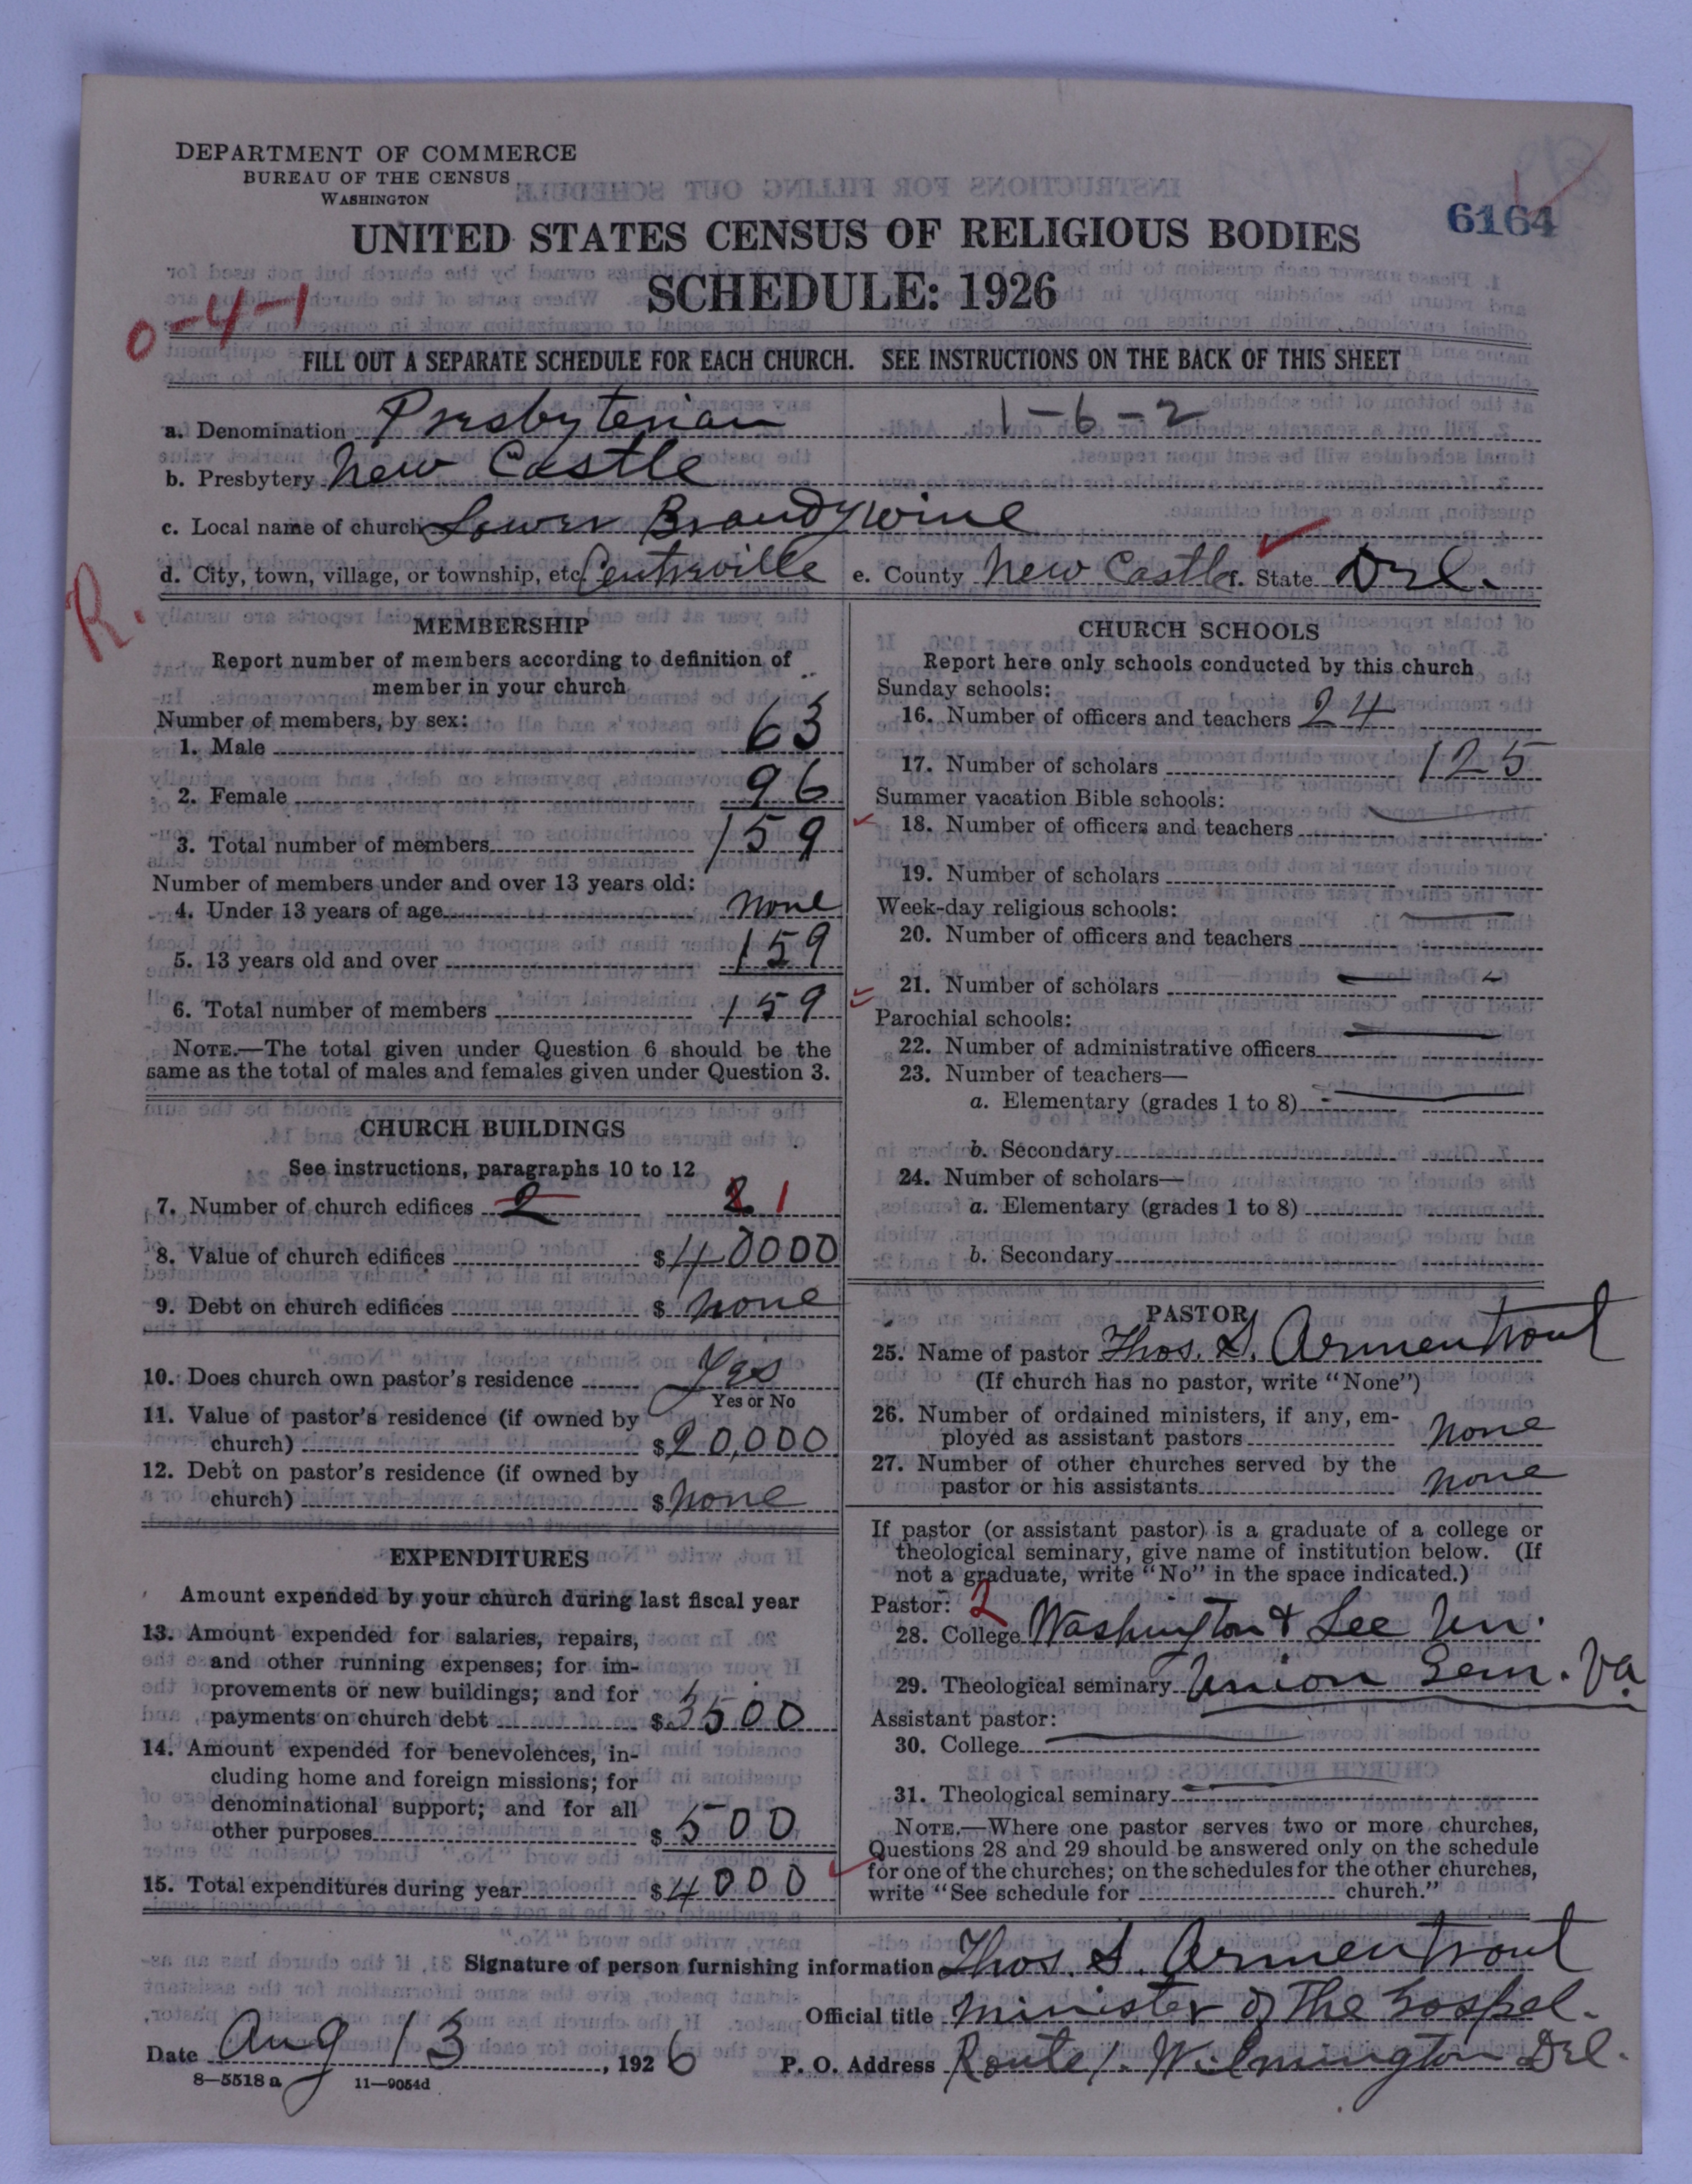 DEPARTMENT OF COMMERCE
BUREAU OF THE CENSUS
WASHINGTON
6164
UNITED STATES CENSUS OF RELIGIOUS BODIES
SCHEDULE: 1926
0-4-1
FILL OUT A SEPARATE SCHEDULE FOR EACH CHURCH. SEE INSTRUCTIONS ON THE BACK OF THIS SHEET
a. Denomination Presbyterian 1-6-2
b. Presbytery New Castle
c. Local name of church Lower Brandywine
d. City, town, village, or township, etc. Centreville e. County New Castle f. State Del.
R.
MEMBERSHIP
Report number of members according to definition of
member in your church
Number of members, by sex:
1. Male 63
2. Female 96
3. Total number of members 159
Number of members under and over 13 years old:
4. Under 13 years of age None
5. 13 years old and over 159
6. Total number of members 159
NOTE.—The total given under Question 6 should be the
same as the total of males and females given under Question 3.
CHURCH BUILDINGS
See instructions, paragraphs 10 to 12
7. Number of church edifices 2 2 1
8. Value of church edifices $40000
9. Debt on church edifices $ None
10. Does church own pastor's residence Yes
Yes or No
11. Value of pastor's residence (if owned by
church) $20,000
12. Debt on pastor's residence (if owned by
church) $ None
EXPENDITURES
Amount expended by your church during last fiscal year
13. Amount expended for salaries, repairs,
and other running expenses; for im-
provements or new buildings; and for
payments on church debt $3500
14. Amount expended for benevolences, in-
cluding home and foreign missions; for
denominational support; and for all
other purposes $500
15. Total expenditures during year $4000
CHURCH SCHOOLS
Report here only schools conducted by this church
Sunday schools:
16. Number of officers and teachers 24
17. Number of scholars 125
Summer vacation Bible schools:
18. Number of officers and teachers
19. Number of scholars
Week-day religious schools:
20. Number of officers and teachers
21. Number of scholars
Parochial schools:
22. Number of administrative officers
23. Number of teachers—
a. Elementary (grades 1 to 8)
b. Secondary
24. Number of scholars—
a. Elementary (grades 1 to 8)
b. Secondary
PASTOR
25. Name of pastor Thos. S. Armentrout
(If church has no pastor, write "None")
26. Number of ordained ministers, if any, em-
ployed as assistant pastors None
27. Number of other churches served by the
pastor or his assistants None
If pastor (or assistant pastor) is a graduate of a college or
theological seminary, give name of institution below. (If
not a graduate, write "No" in the space indicated.)
Pastor: 2
28. College Washington & Lee Un.
29. Theological seminary Union Sem. Va.
Assistant pastor:
30. College
31. Theological seminary
NOTE.—Where one pastor serves two or more churches,
Questions 28 and 29 should be answered only on the schedule
for one of the churches; on the schedules for the other churches,
write "See schedule for church."
Signature of person furnishing information Thos. S. Armentrout
Official title Minister of The Gospel.
Date Aug 13, 1926 P. O. Address Route 1. Wilmington Del.
8—5518 a 11—9054d